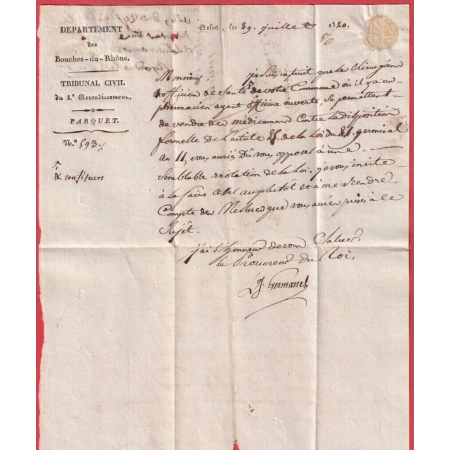 DEPARTEMENT
des
Bouches-du-Rhône.
TRIBUNAL CIVIL
du 3.e Arrondissement.
PARQUET.
N.o 593.
Arles, le 29 juillet 1820.
Monsieur
je suis instruit que les chirurgiens
& officiers de Santé de votre Commune où il y a un
pharmacien ayant officine ouverte, se permettent
de vendre des médicamens Contre la disposition
formelle de l'article 27 de la loi du 21 germinal
an 11, vous auriez Du vous opposer à une
Semblable violation de la loi. je vous invite
à la faire Cesser au plutôt et à me rendre
Compte des Mesures que vous aurez prises à ce
Sujet.
j'ai l'honneur de vous Saluer
le Procureur du Roi,